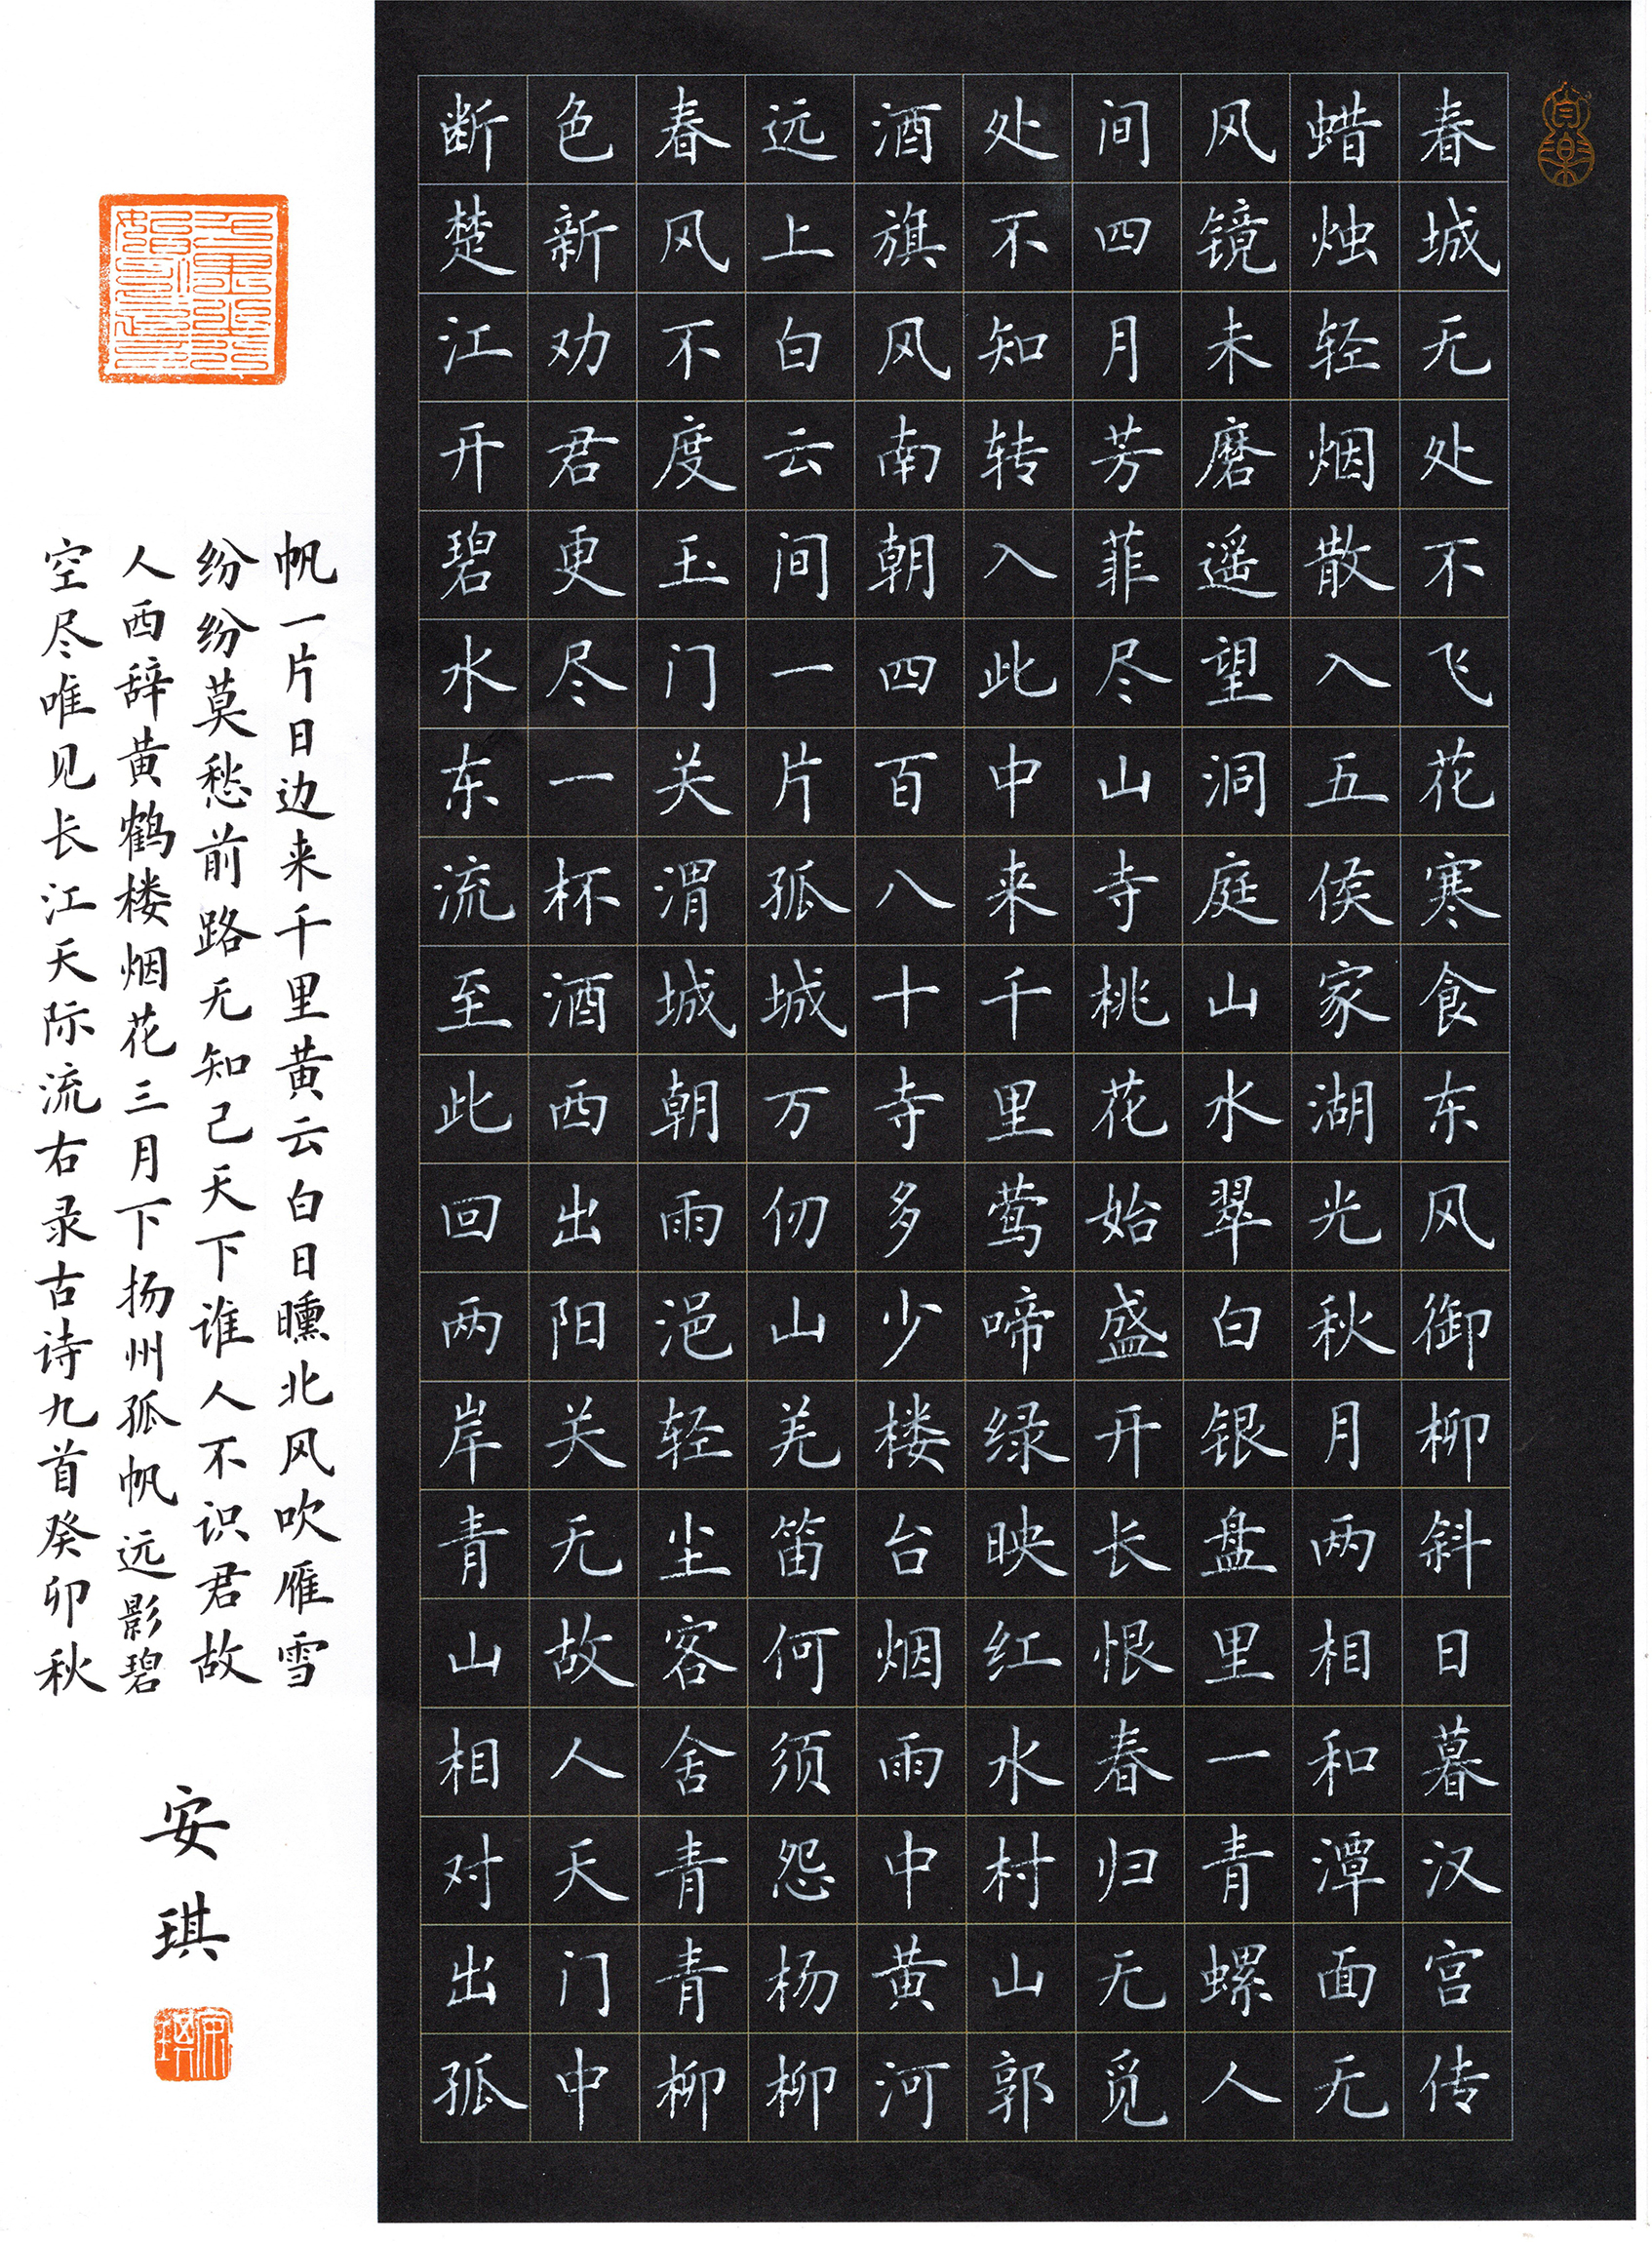 春城无处不飞花寒食东风御柳斜日暮汉宫传
蜡烛轻烟散入五侯家湖光秋月两相和潭面无
风镜未磨遥望洞庭山水翠白银盘里一青螺人
间四月芳菲尽山寺桃花始盛开长恨春归无觅
处不知转入此中来千里莺啼绿映红水村山郭
酒旗风南朝四百八十寺多少楼台烟雨中黄河
远上白云间一片孤城万仞山羌笛何须怨杨柳
春风不度玉门关渭城朝雨浥轻尘客舍青青柳
色新劝君更尽一杯酒西出阳关无故人天门中
断楚江开碧水东流至此回两岸青山相对出孤
帆一片日边来千里黄云白日曛北风吹雁雪
纷纷莫愁前路无知己天下谁人不识君故
人西辞黄鹤楼烟花三月下扬州孤帆远影碧
空尽唯见长江天际流右录古诗九首癸卯秋
安琪